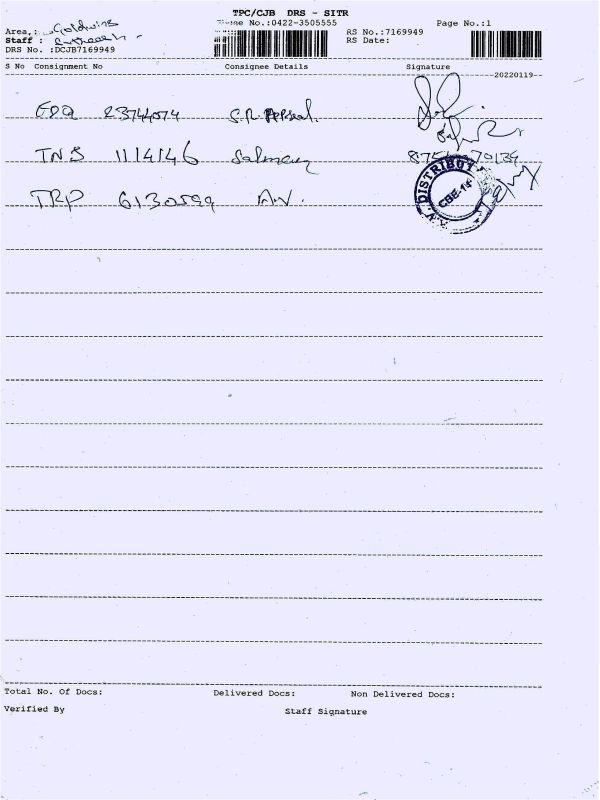 TPC/CJB DRS - SITR
Phone No.:0422-3505555
Page No.:1
Area.: Goldwins
RS No.:7169949
Staff :
RS Date:
DRS No. :DCJB7169949
S No Consignment No Consignee Details Signature
20220119
EDQ 23744074 S.R.
TNB 1114146
TRP 6130599 A.V.
A.V. DISTRIBUT
CBE-14
Total No. Of Docs: Delivered Docs: Non Delivered Docs:
Verified By Staff Signature